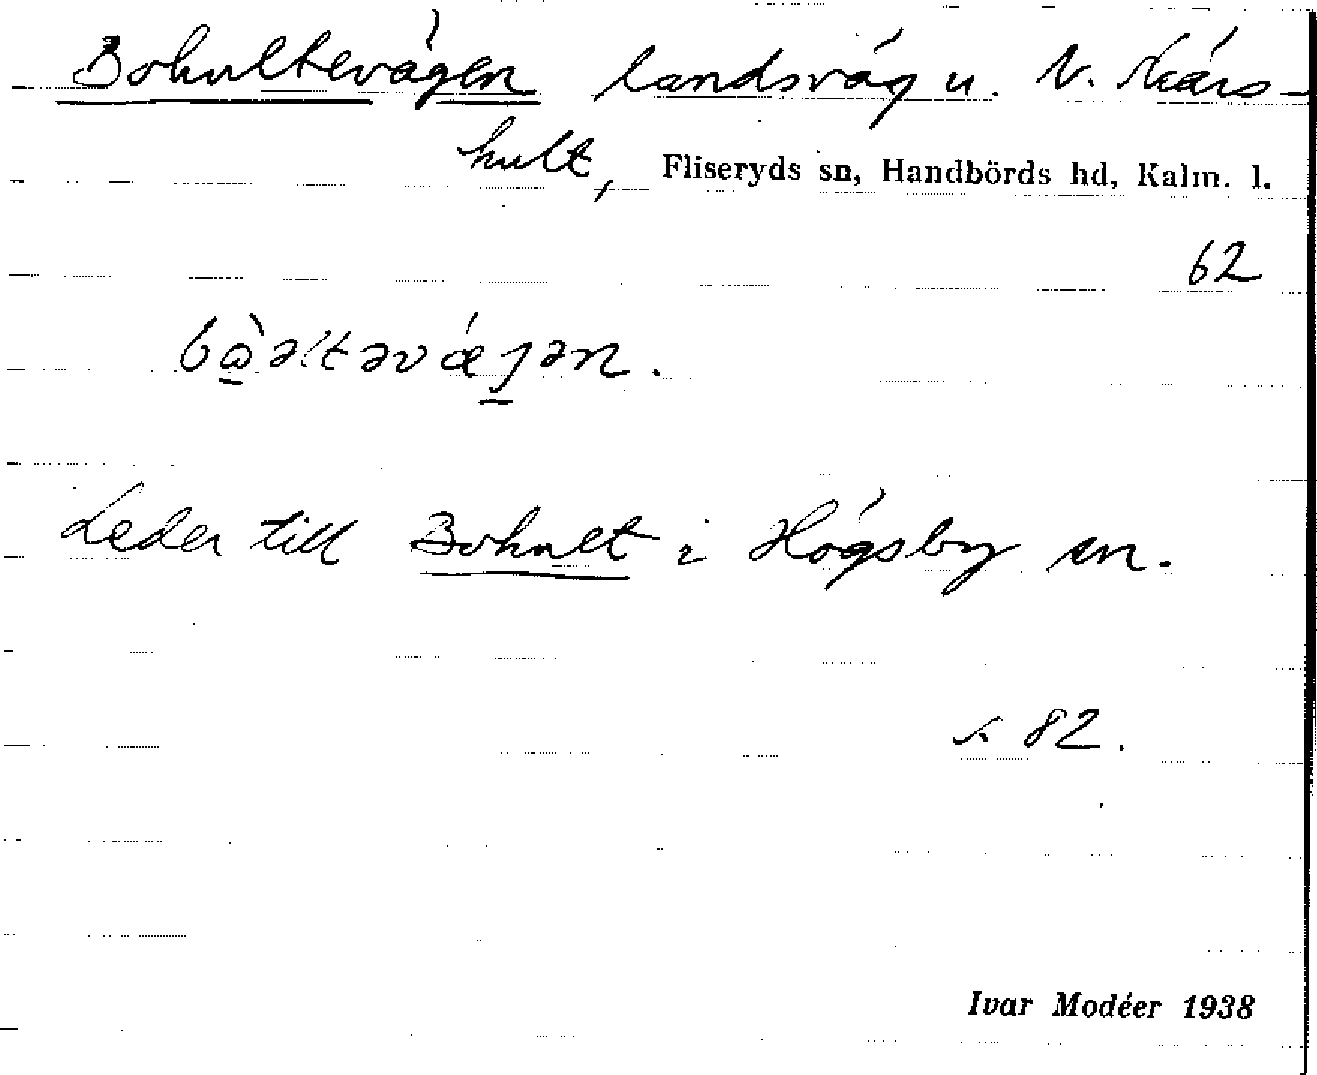 Bohultevägen landsväg u. V. Skärs-
hult, Fliseryds sn, Handbörds hd, Kalm. l.
62
Leder till Bohult i Högsby sn.
82.
Ivar Modéer 1938